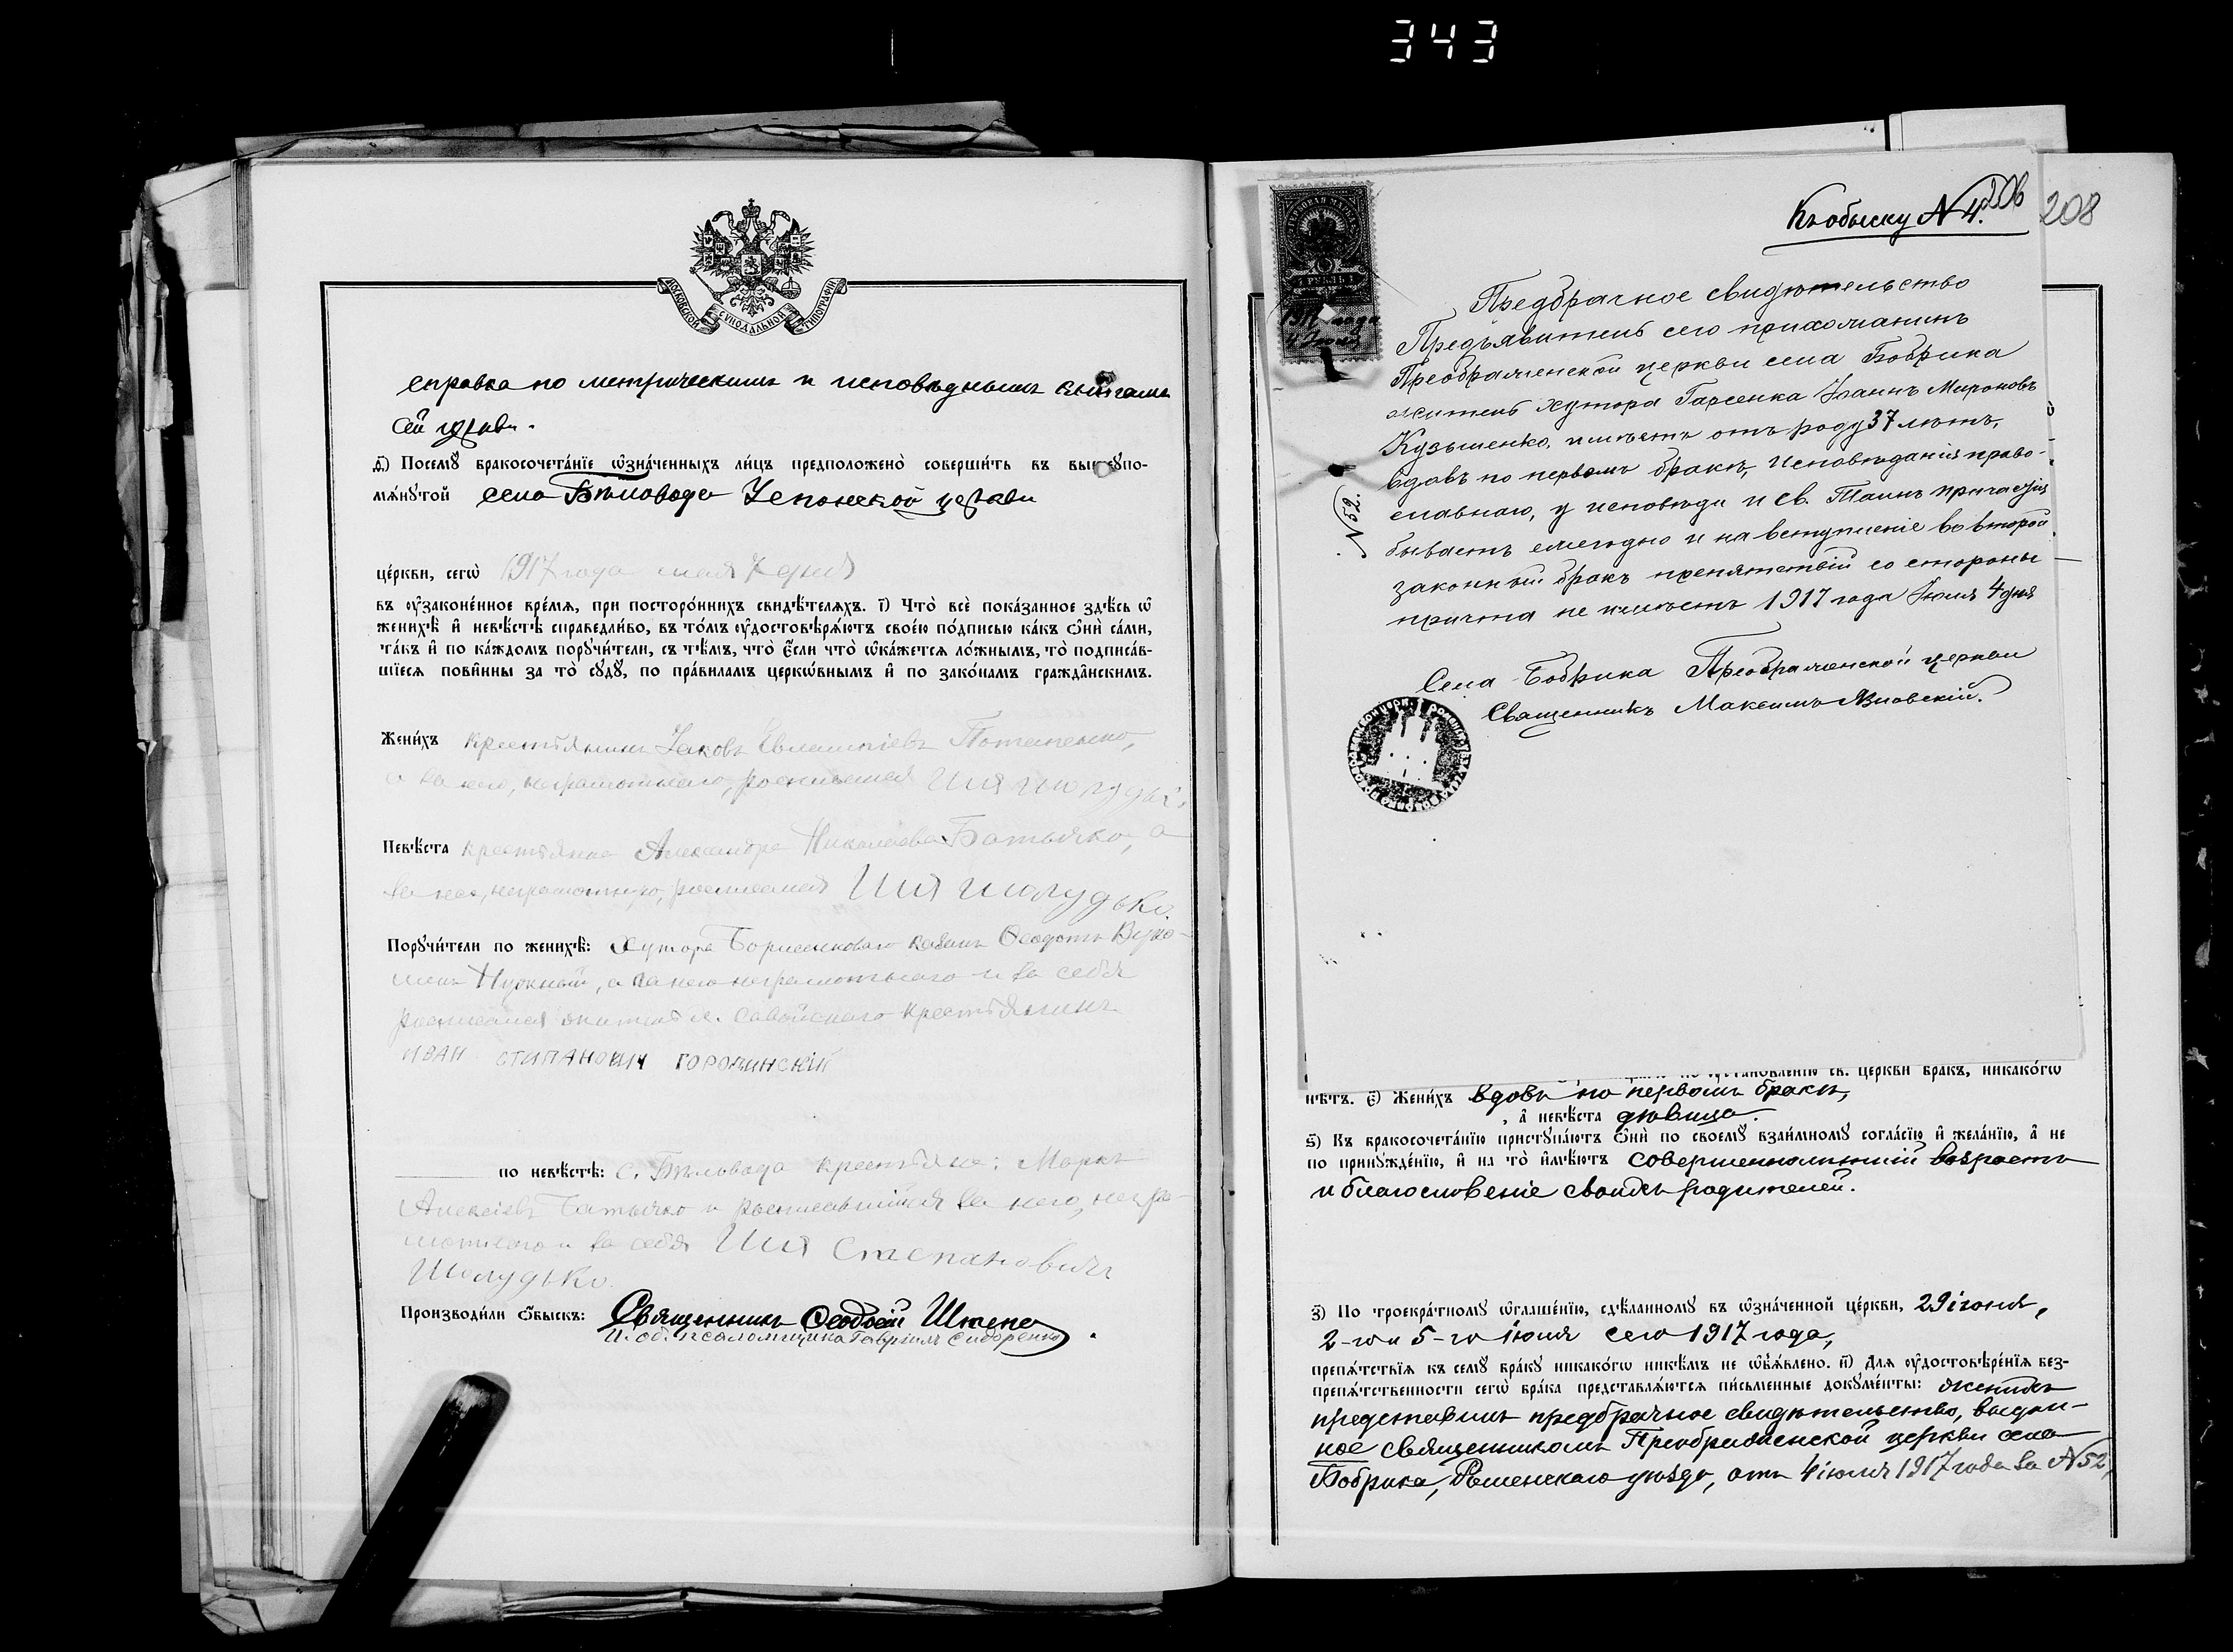 343
МОСКОВСКОЙ СѴНОДАЛЬНОЙ ТИПОГРАФІИ
справка по метрическимъ и исповѣднымъ книгамъ
сей церкви.
д҃) Посемꙋ̀ бракосочета́нїе ѡ҆зна́ченныхъ ли́цъ предположено̀ соверши́ть въ вышеꙋпо-
мѧ́нꙋтой села Бѣловода Успенской церкви
це́ркви, сегѡ̀ 1917 года мая 7 дня
въ ᲂу҆законе́нное вре́мѧ, при посторо́ннихъ свидѣ́телѧхъ. і҃) Что̀ всѐ пока́занное здѣ́сь ѡ҆
женихѣ̀ и҆ невѣ́стѣ справедли́во, въ то́мъ ᲂу҆достовѣрѧ́ютъ свое́ю по́дписью ка́къ ѻ҆нѝ са́ми,
та́къ и҆ по ка́ждомъ порꙋчи́тели, съ тѣ́мъ, что̀ є҆́сли что̀ ѡ҆ка́жетсѧ ло́жнымъ, то̀ подписа́в-
шїесѧ пови́нны за то̀ сꙋдꙋ̀, по пра́виламъ церко́внымъ и҆ по зако́намъ гражда́нскимъ.
Жени́хъ крестьянинъ Іаковъ Евлампіевъ Потапенко,
а за него, неграмотнаго, росписался Илія
Невѣ́ста крестьянка Александра Николаева Батычко, а
за нее, неграмотную, росписался Илія Шолудько.
Порꙋчи́тели по женихѣ̀: Хутора Борисенкова козакъ Ѳеодотъ
Нужный, а за него неграмотнаго и за себя
росписался житель с. крестьянинъ
ИВАН СТИПАНОВИЧ
по невѣ́стѣ: с. Бѣловода крестьяне: Маркъ
Алексіевъ Батычко и росписавшійся за него, негра-
мотнаго и за себя Илія Степановичъ
Шолудько.
Производи́ли ѻ҆́быскъ: Священникъ Ѳеодосій
И. об. псаломщика Гавріилъ Сидоренко.
Къ обыску № 4. 206
208
1 РУБЛЬ 1
1917 года
4 Іюля
№ 52.
Предбрачное свидѣтельство
Предъявитель сего прихожанинъ
Преображенской церкви села Бобрика
житель хутора Гарсенка Іоаннъ Мироновъ
Кузьменко, имѣетъ отъ роду 37 лѣтъ,
вдовъ по первомъ бракѣ, исповѣданія право-
славнаго, у исповѣди и св. Таинъ причастія
бываетъ ежегодно и на вступленіе во второй
законный бракъ препятствій со стороны
причта не имѣетъ 1917 года Іюля 4 дня
Села Бобрика Преображенской церкви
Священникъ Максимъ
по ᲂу҆становле́нїю св. це́ркви бра́къ, никако́гѡ
нѣ́тъ. є҃) Жени́хъ вдовъ по первомъ бракѣ,
, а҆ невѣ́ста дѣвица.
ѕ҃) Къ бракосочета́нїю пристꙋпа́ютъ ѻ҆нѝ по своемꙋ̀ взаи́мномꙋ согла́сїю и҆ жела́нїю, а҆ не
по принꙋжде́нїю, и҆ на то̀ и҆мѣ́ютъ совершеннолѣтній возрастъ
и благословеніе своихъ родителей.
з҃) По троекра́тномꙋ ѡ҆глаше́нїю, сдѣ́ланномꙋ въ ѡ҆зна́ченной це́ркви, 29 іюня,
2-го и 5-го іюля сего 1917 года,
препѧ́тствїѧ къ семꙋ̀ бра́кꙋ никако́гѡ никѣ́мъ не ѡ҆б̾ѧ́влено. и҃) Длѧ ᲂу҆достовѣре́нїѧ без-
препѧ́тственности сегѡ̀ бра́ка представлѧ́ютсѧ пи́сьменные докꙋме́нты: женихъ
представилъ предбрачное свидѣтельство, выдан-
ное священникомъ Преображенской церкви села
Бобрика, Роменскаго уѣзда, отъ 4 іюля 1917 года за № 52,